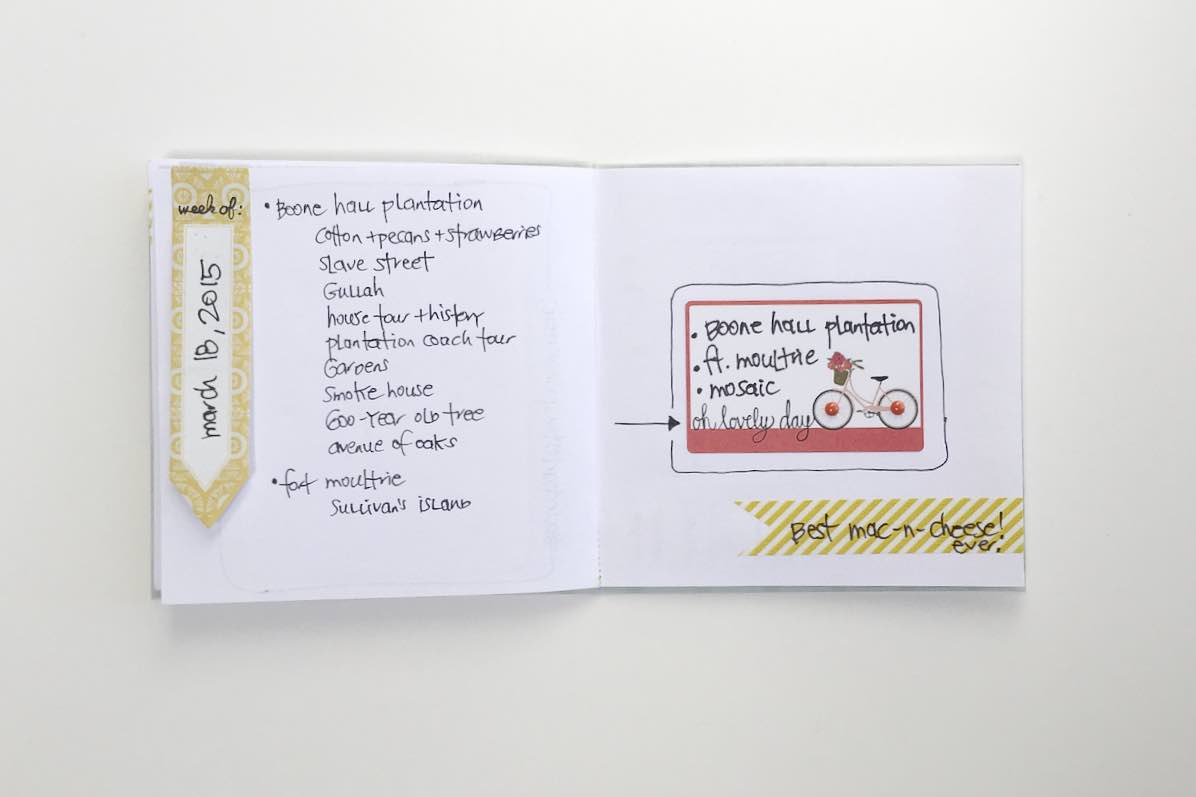 week of:
march 18, 2015
• Boone hall plantation
cotton + pecans + strawberries
slave street
Gullah
house tour + history
plantation coach tour
Gardens
smoke house
600-year old tree
avenue of oaks
• fort moultrie
Sullivan's island
• Boone hall plantation
• ft. moultrie
• mosaic
oh lovely day
Best mac-n-cheese!
ever.